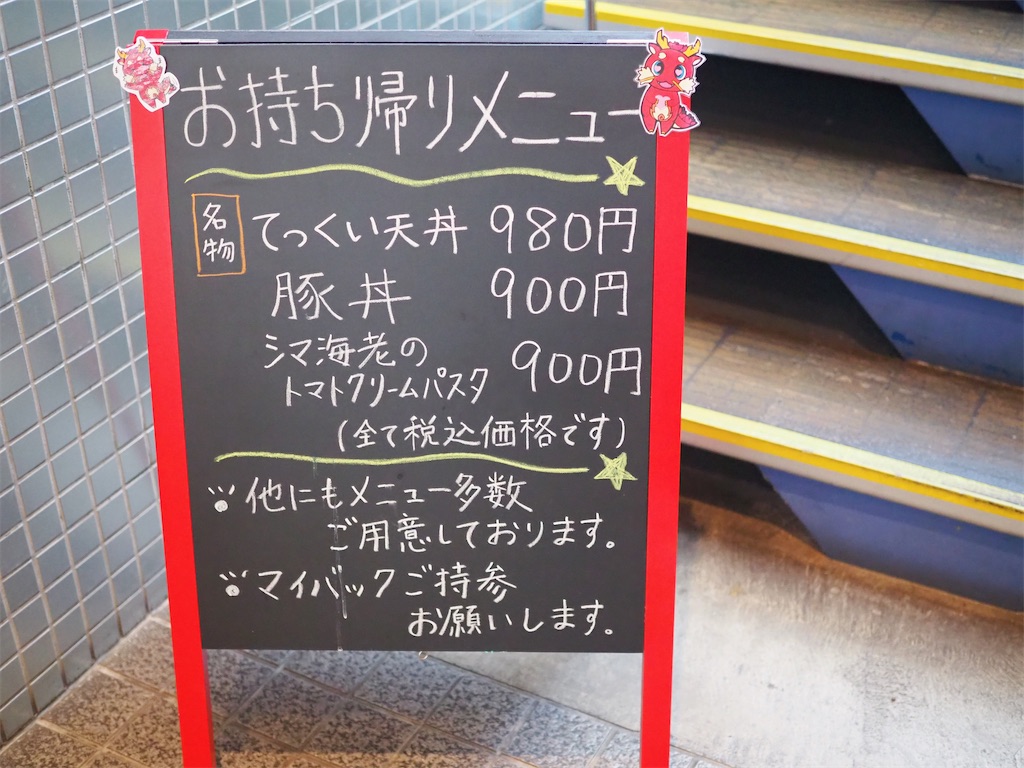 お持ち帰りメニュー
名物 てっくい天丼 980円
豚丼 900円
シマ海老の
トマトクリームパスタ 900円
(全て税込価格です)
※他にもメニュー多数
ご用意しております。
※マイバックご持参
お願いします。